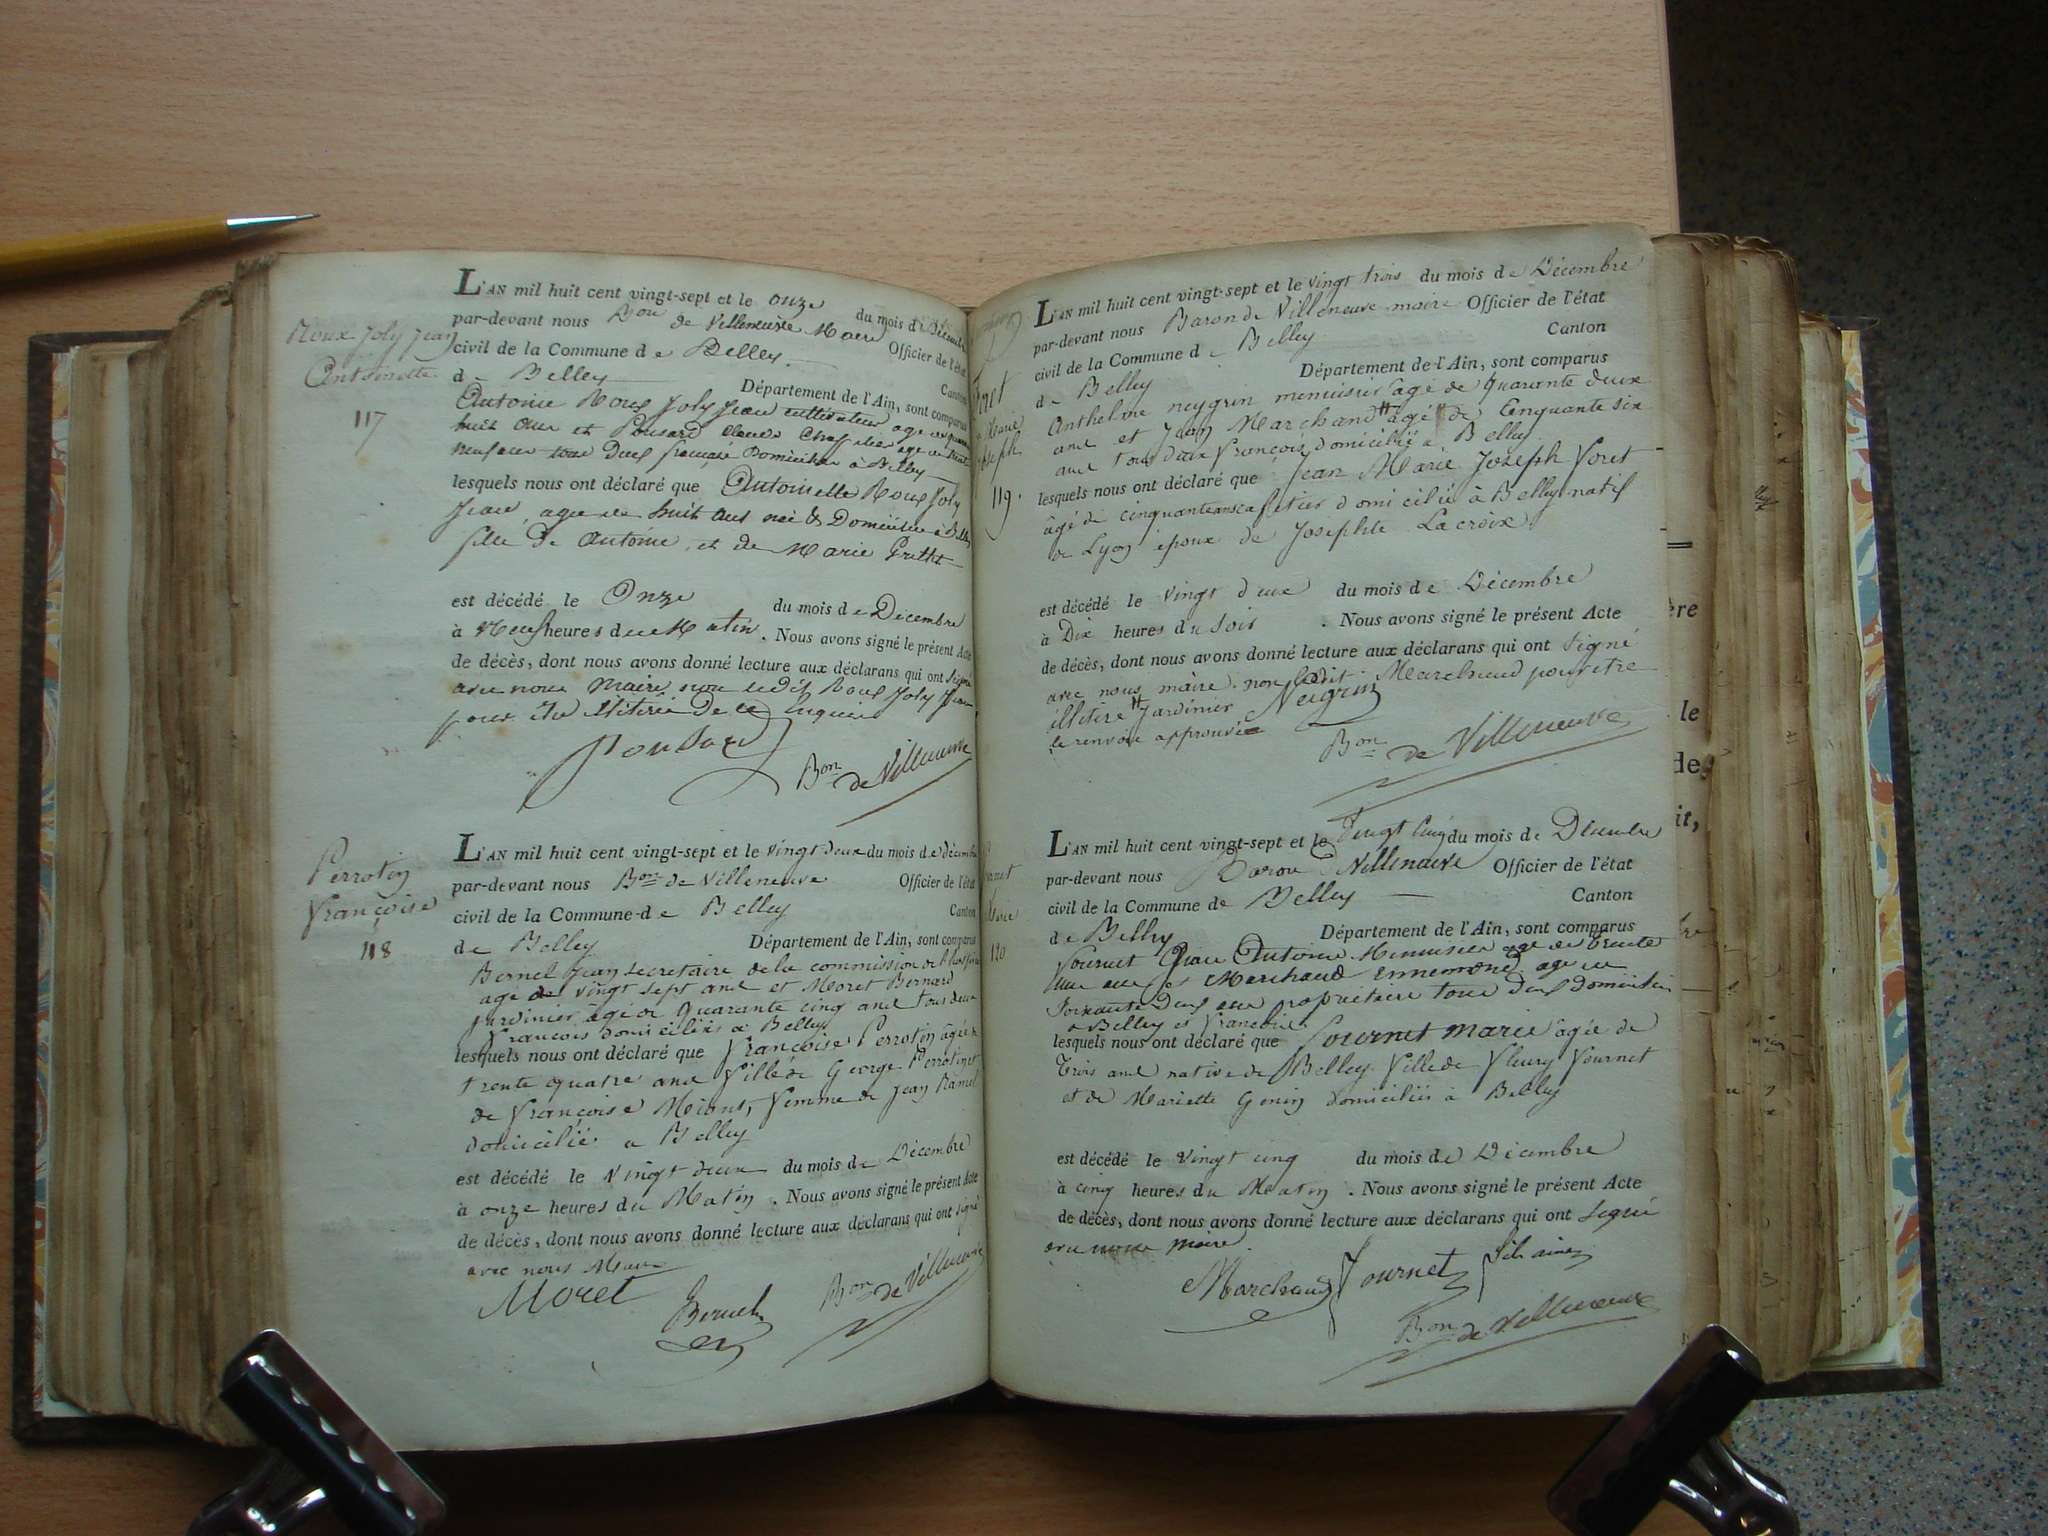 Roux Joly Jean
Antoinette
117
L'AN mil huit cent vingt-sept et le onze du mois de Décembre
par-devant nous Bon de Villeneuve Maire Officier de l'état
civil de la Commune de Belley Canton
de Belley Département de l'Ain, sont comparus
Antoine Roux Joly Jean cultivateur agé de
huit ans et Ponsard Claude agé de
neuf ans tous deux français Domiciliés à Belley
lesquels nous ont déclaré que Antoinette Roux Joly
Jean, agée de huit ans née & Domiciliée à Belley
fille de Antoine et de Marie Grillet
est décédé le Onze du mois de Décembre
à Neuf heures du Matin. Nous avons signé le présent Acte
de décès, dont nous avons donné lecture aux déclarans qui ont signé
avec nous Maire non ledit Roux Joly Jean
pour être illitéré de ce enquis
Ponsard
Bon de Villeneuve
Perrotin
Françoise
118
L'AN mil huit cent vingt-sept et le vingt deux du mois de décembre
par-devant nous Bon de Villeneuve Officier de l'état
civil de la Commune de Belley Canton
de Belley Département de l'Ain, sont comparus
Bernel Jean secretaire de la commission de
agé de vingt sept ans et Moret Bernard
jardinier âgé de quarante cinq ans tous deux
francois domiciliés a Belley
lesquels nous ont déclaré que Françoise Perrotin âgée de
trente quatre ans fille de George Perrotin et
de Françoise Miant, femme de Jean Ramel
domicilié a Belley
est décédé le vingt deux du mois de Décembre
à onze heures du Matin. Nous avons signé le présent Acte
de décès, dont nous avons donné lecture aux déclarans qui ont signé
avec nous Maire
Moret
Bernel
Bon de Villeneuve
Foret
Marie
Joseph
119.
L'AN mil huit cent vingt-sept et le vingt trois du mois de Décembre
par-devant nous Baron de Villeneuve maire Officier de l'état
civil de la Commune de Belley Canton
de Belley Département de l'Ain, sont comparus
Anthelme neygrin menuisier agé de quarante deux
ans et Jean Marchand # âgé de Cinquante six
ans tous deux François domicilié a Belley
lesquels nous ont déclaré que Jean Marie Joseph Foret
âgé de cinquante ans cafetier domicilié à Belley natif
de Lyon époux de Josephte Lacroix
est décédé le vingt deux du mois de Décembre
à Dix heures du soir. Nous avons signé le présent Acte
de décès, dont nous avons donné lecture aux déclarans qui ont signé
avec nous maire. non ledit Marchand pour etre
illitiré # Jardinier Neigrin
le renvoi approuvé
Bon de Villeneuve
Marie
120
L'AN mil huit cent vingt-sept et le vingt cinq du mois de Décembre
par-devant nous Baron de Villeneuve Officier de l'état
civil de la Commune de Belley Canton
de Belley Département de l'Ain, sont comparus
Fournet Antoine Menuisier agé de trente
un ans et Marchand Ennemond agé de
soixante deux ans propriétaire tous deux domiciliés
a Belley et francois
lesquels nous ont déclaré que Fournet Marie âgée de
Trois ans native de Belley fille de Fleury Fournet
et de Mariette Genin domiciliés à Belley
est décédé le vingt cinq du mois de Décembre
à cinq heures du Matin. Nous avons signé le présent Acte
de décès, dont nous avons donné lecture aux déclarans qui ont signé
avec nous maire.
Marchand Fournet fils ainé
Bon de Villeneuve
ère
le
de
it,